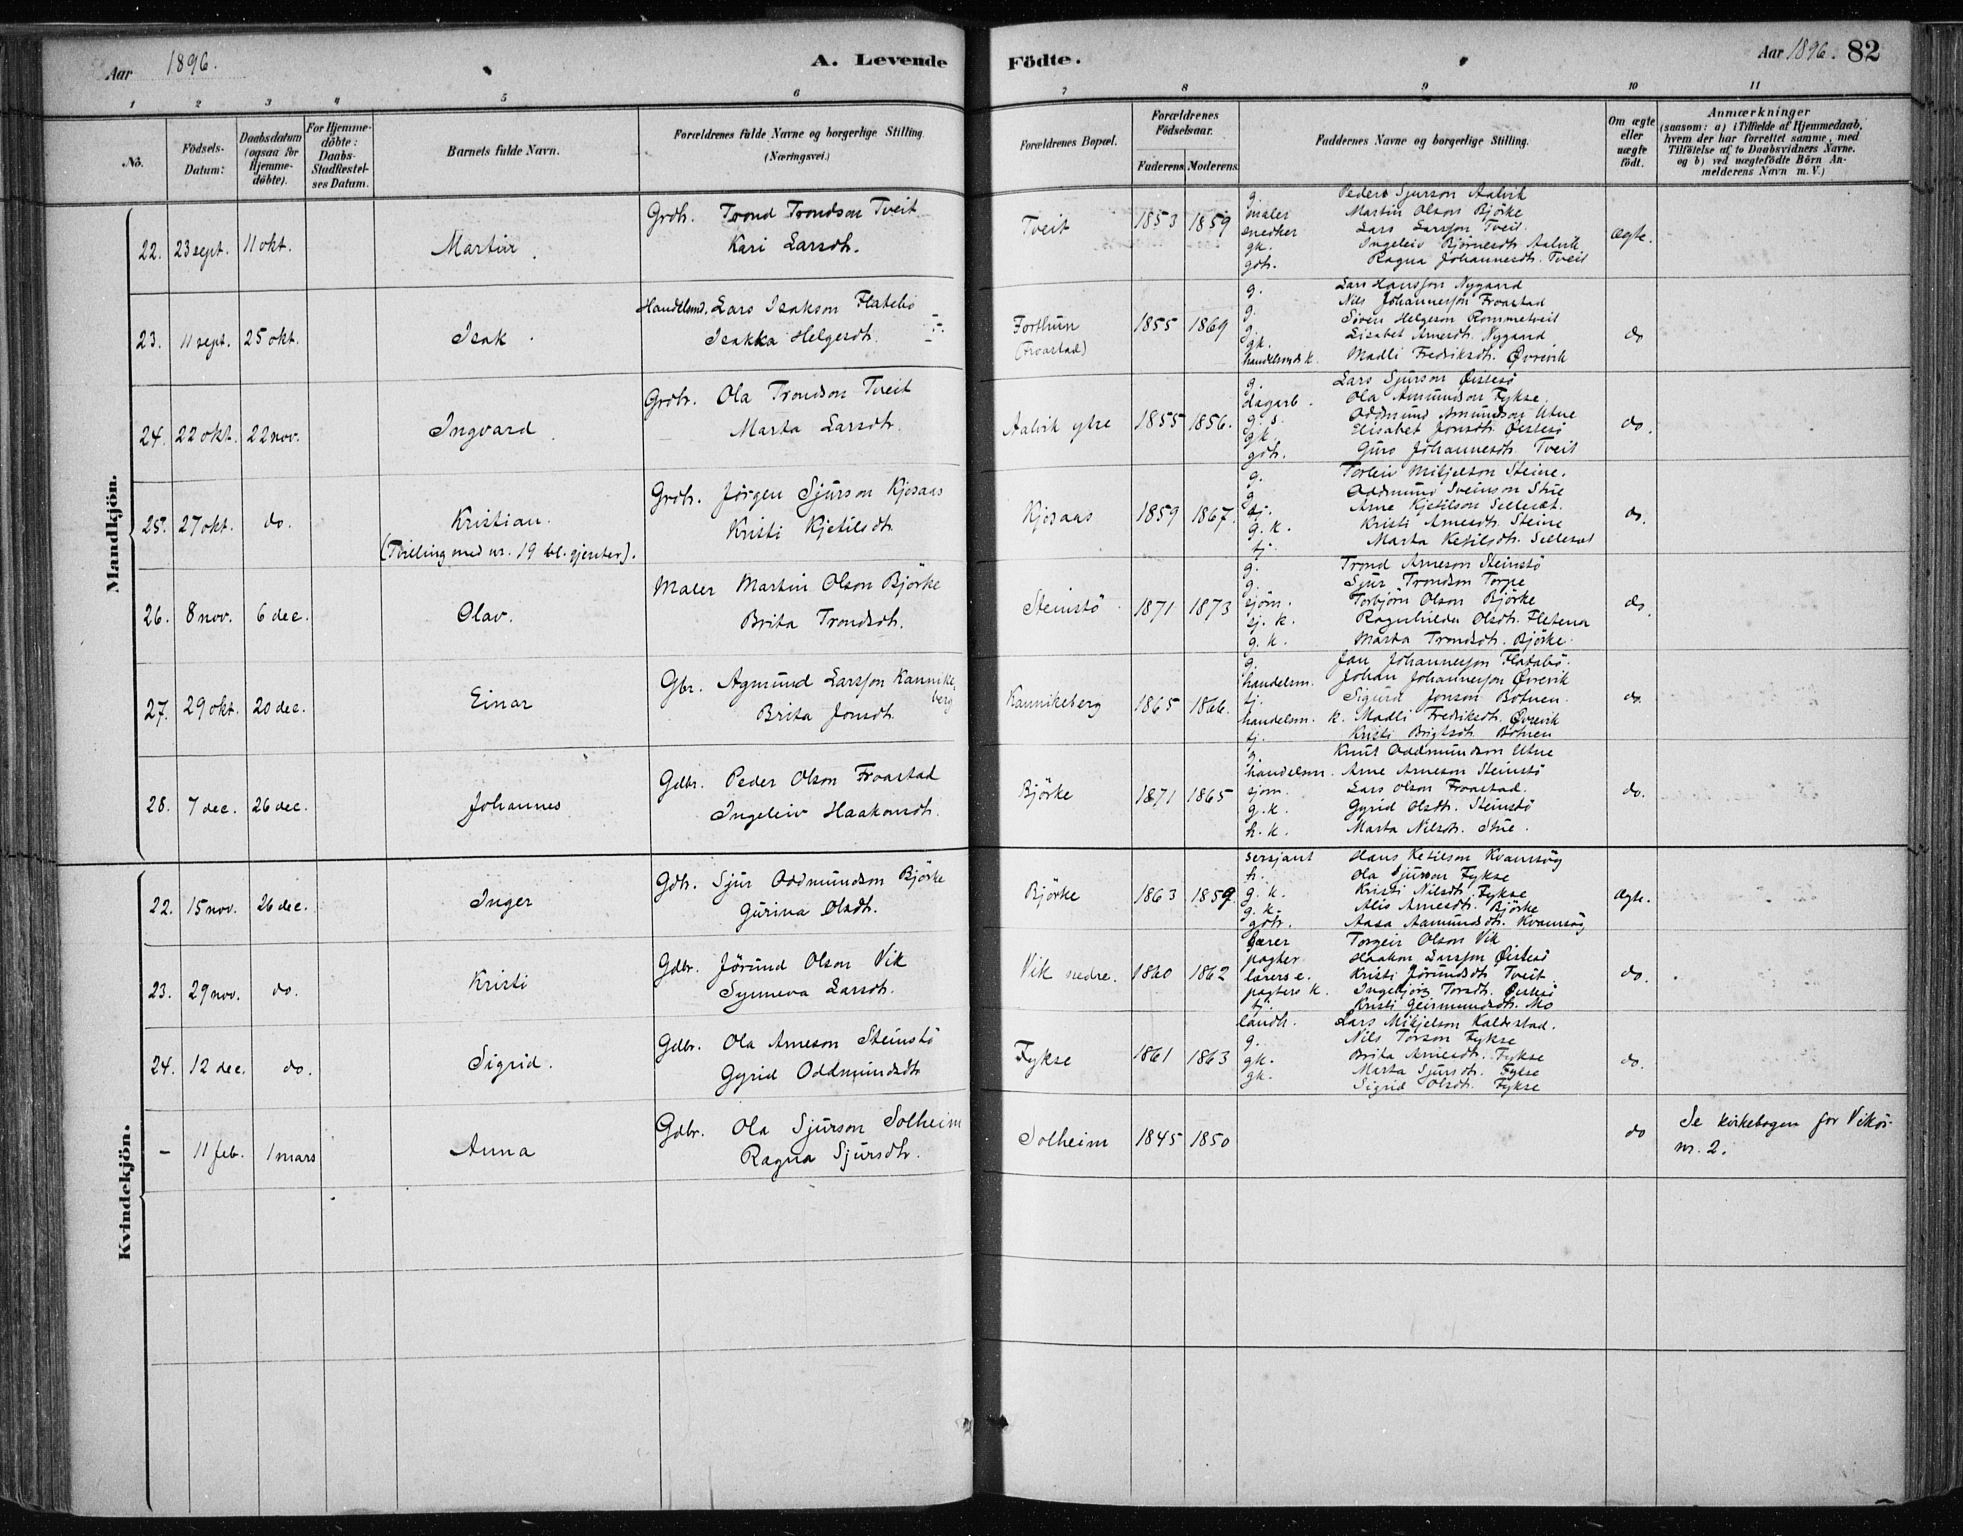 Aar 1896.
A. Levende Födte.
Aar 1896. 82
1 2 3 4 5 6 7 8 9 10 11
No.
Födsels-Datum:
Daabsdatum (ogsaa for Hjemme-döbte).
For Hjemme-döbte: Daabs-Stadfæstel-ses Datum.
Barnets fulde Navn.
Forældrenes fulde Navne og borgerlige Stilling. (Næringsvei.)
Forældrenes Bopæl.
Forældrenes Födselsaar.
Faderens. Moderens.
Faddernes Navne og borgerlige Stilling.
Om ægte eller uægte födt.
Anmærkninger
(saasom: a) i Tilfælde af Hjemmedaab,
hvem der har forrettet samme, med
Tilföielse af to Daabsvidners Navne,
og b) ved uægtefödte Börn An-
melderens Navn m. V.)
Mandkjön.
22. 23 sept. 11 okt. Martin.
Grdbr. Trond Trondson Tveit
Kari Larsdtr.
Tveit 1853 1859
g. Peder Sjurson Aalvik
maler Martin Olson Björke
snedker Lars Larsson Tveit
gk. Ingeleiv Björnesdtr. Aalvik
gdtr. Ragna Johannesdtr. Tveit
Ægte.
23. 11 sept. 25 okt. Isak
Handelsmd. Lars Isakson Flatebö
Isakka Helgesdtr.
Forthun (Froastad) 1855 1869
g. Lars Hansson Nygaard
g. Nils Johannesson Froastad
g. Sören Helgeson Rommetveit
gk. Lisabet Arnesdtr. Nygaard
handelsmds k. Madli Fredriksdtr. Övrevik
do
24. 22 okt. 22 nov. Ingvard
Grdbr. Ola Trondson Tveit
Marta Larsdtr.
Aalvik ytre 1855 1856.
g. Lars Sjurson Östesö
dagarb. Ola Amundson Fykse.
g. s. Oddmund Amundson Utne
gk. Elisabet Jonsdtr. Östesö
gdtr. Guro Johannesdtr. Tveit
do.
25. 27 okt. do. Kristian.
(Tvilling med nr. 19 bl. gjenter).
Grdbr. Jörgen Sjurson Kjosaas
Kristi Kjetilsdtr.
Kjosaas 1859 1867.
g. Torleiv Mikjelson Steine.
g. Oddmund Sveinson Stue
tj. Arne Kjetilson Selleset.
g. k. Kristi Arnesdtr. Steine
tj. Marta Ketilsdtr. Selleset
do.
26. 8 nov. 6 dec. Olav.
Maler Martin Olson Björke
Brita Trondsdtr.
Steinstö 1871 1873
g. Trond Arneson Steinstö
g. Sjur Trondson Torpe
sjöm. Torbjörn Olson Björke
sj. k. Ragnhilda Olsdtr. Fletena
g. k. Marta Trondsdtr. Björke
do.
27. 29 okt. 20 dec. Einar
Gbr. Agmund Larsson Kannikeberg
Brita Jonsdtr.
Kannikeberg 1865 1866.
g. Jan Johannesson Flatabö.
handelsm. Johan Johannesson Övrevik
tj. Sigurd Jonson Botnen.
handelsm. k. Madli Fredriksdtr. Övrevik
tj. Kristi Brigtsdtr. Botnen
do.
28. 7 dec. 26 dec. Johannes
Gdbr. Peder Olson Froastad
Ingeleiv Haakonsdtr.
Björke 1871 1865
g. Knut Oddmundson Utne
handelsm. Arne Arneson Steinstö
sjöm. Lars Olson Froastad.
g. k. Gyrid Olsdtr. Steinstö
h. k. Marta Nilsdtr. Stue.
do.
Kvindekjön.
22. 15 nov. 26 dec. Inger
Gdbr. Sjur Oddmundson Björke
Gurina Olsdtr.
Björke 1863 1859.
sersjant Hans Ketilson Kvamsög
h. Ola Sjurson Fykse
g. k. Kristi Nilsdtr. Fykse
g. k. Alis Arnesdtr. Björke
gdtr. Aasa Aamundsdtr. Kvamsög
Ægte.
23. 29 nov. do. Kristi
Gdbr. Jörund Olson Vik
Synneva Larsdtr.
Vik nedre. 1860 1862
lærer Torgeir Olson Vik
pagter Haakon Larsson Östesö
lærers e. Kristi Jörundsdtr. Tveit
pagters k. Ingebjörg Torsdtr. Östesö
tj. Kristi Geirmundsdtr. Mo
do.
24. 12 dec. do. Sigrid.
Gdbr. Ola Arneson Steinstö
Gyrid Oddmundsdtr
Fykse 1861 1863
landh. Lars Mikjelson Kaldestad.
g. Nils Torson Fykse
gk. Brita Arnesdtr. Fykse
gk. Marta Sjursdtr. Fykse
Sigrid Olsdtr. Fykse
do.
– 11 feb. 1 mars Anna
Gdbr. Ola Sjurson Solheim
Ragna Sjursdtr.
Solheim 1845 1850
do
Se kirkebogen for Vikör
nr. 2.